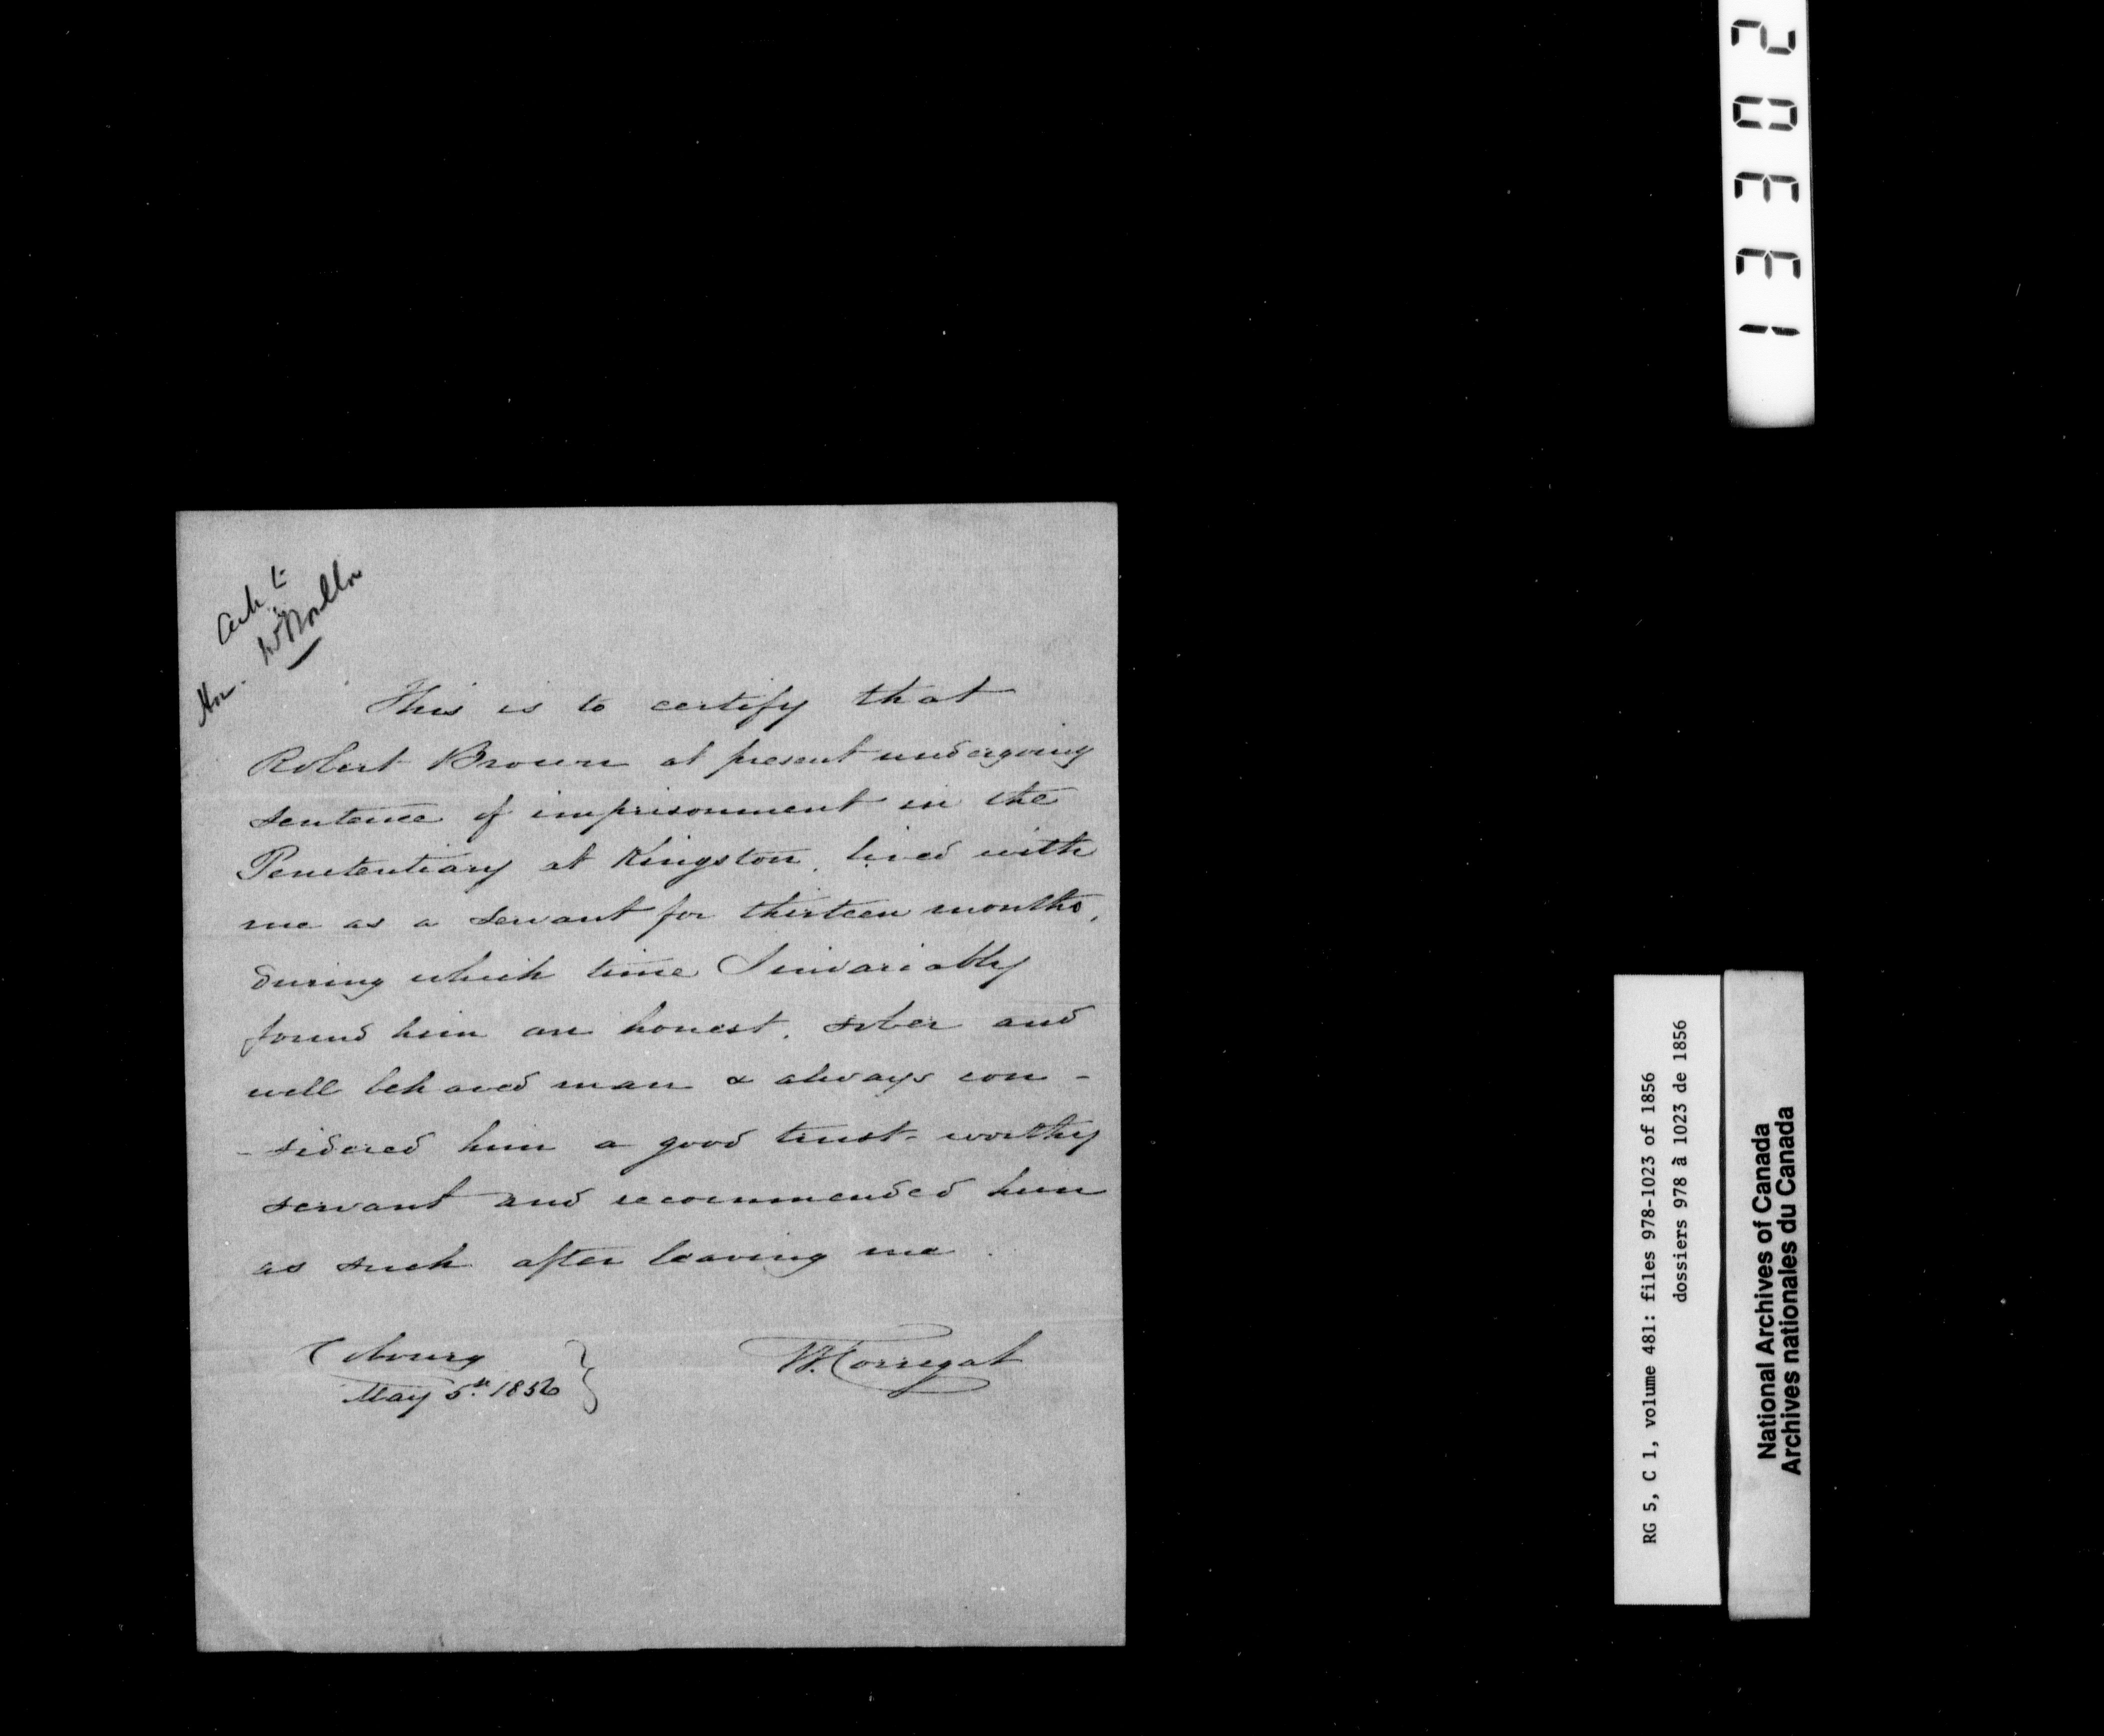 Hon.
This is to certify that
Robert Brown at present undergoing
sentence of imprisonment in the
Penetentiary at Kingston, lived with
me as a servant for thirteen months,
during which time I invariably
found him an honest, sober and
well behaved man & always con -
- sidered him a good trust-worthy
servant and recommended him
as such after leaving me.
Cobourg
May 5th. 1856
W. Corrigal
20331
RG 5, C 1, volume 481: files 978-1023 of 1856
dossiers 978 à 1023 de 1856
National Archives of Canada
Archives nationales du Canada